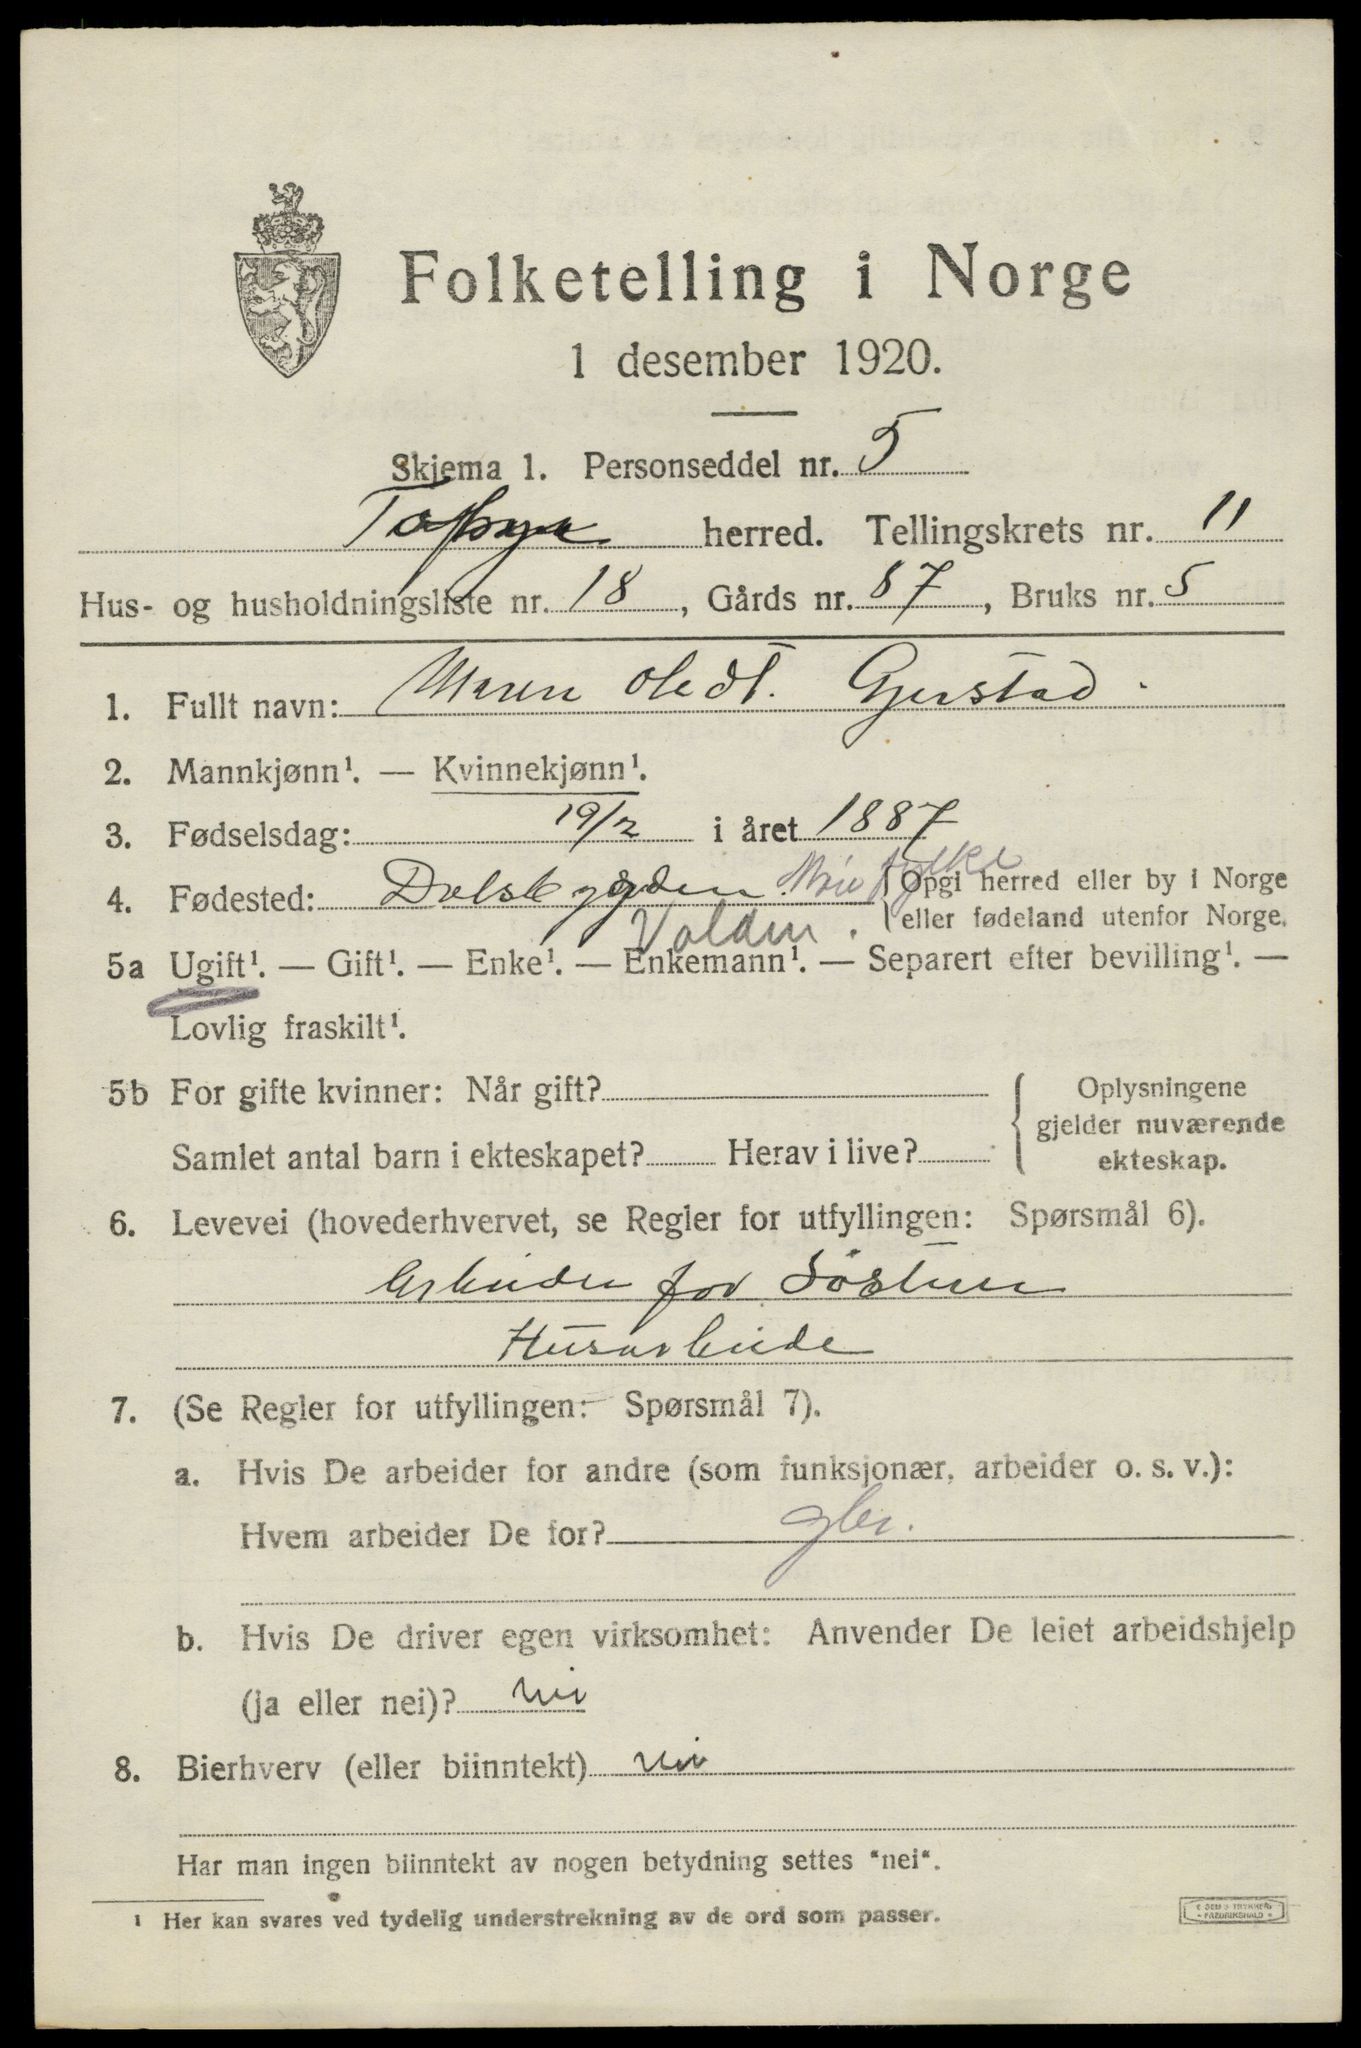 Folketelling i Norge
1 desember 1920.
Skjema 1. Personseddel nr. 5
herred. Tellingskrets nr. 11
Hus- og husholdningsliste nr. 18, Gårds nr. 87, Bruks nr. 5
1. Fullt navn: Maren Gjerstad.
2. Mannkjønn¹. — Kvinnekjønn¹.
3. Fødselsdag: 19/2 i året 1887
4. Fødested: Møre fylke {Opgi herred eller by i Norge
Volden. eller fødeland utenfor Norge.
5a Ugift¹. — Gift¹. — Enke¹. — Enkemann¹. — Separert efter bevilling¹. —
Lovlig fraskilt¹.
5b For gifte kvinner: Når gift? { Oplysningene
gjelder nuværende
Samlet antal barn i ekteskapet? Herav i live? ekteskap.
6. Levevei (hovederhvervet, se Regler for utfyllingen: Spørsmål 6).
Arbeider for Søsteren
Husarbeide
7. (Se Regler for utfyllingen: Spørsmål 7).
a. Hvis De arbeider for andre (som funksjonær, arbeider o. s. v.):
Hvem arbeider De for?
b. Hvis De driver egen virksomhet: Anvender De leiet arbeidshjelp
(ja eller nei)? nei
8. Bierhverv (eller biinntekt) nei
Har man ingen biinntekt av nogen betydning settes "nei".
¹ Her kan svares ved tydelig understrekning av de ord som passer.